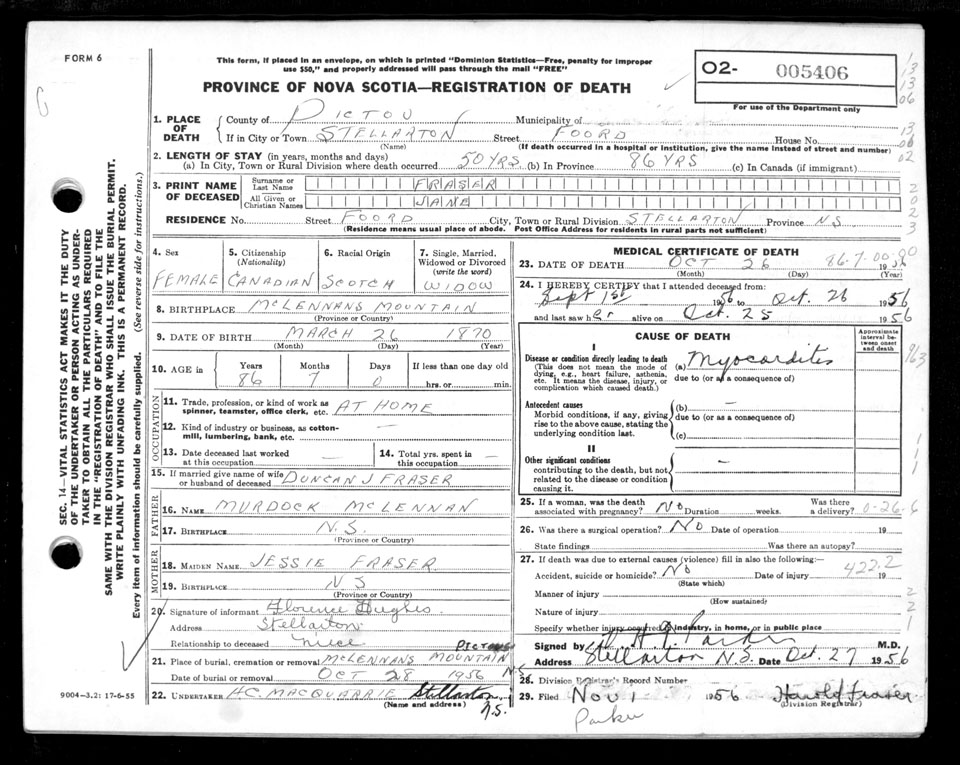 FORM 6
This form, if placed in an envelope, on which is printed "Dominion Statistics—Free, penalty for improper
use $50," and properly addressed will pass through the mail "FREE"
PROVINCE OF NOVA SCOTIA—REGISTRATION OF DEATH
02- 005406
For use of the Department only
1. PLACE OF DEATH
County of PICTOU Municipality of
If in City or Town STELLARTON Street FOORD House No.
(Name) (If death occurred in a hospital or institution, give the name instead of street and number)
2. LENGTH OF STAY (in years, months and days)
(a) In City, Town or Rural Division where death occurred 50 YRS (b) In Province 86 YRS (c) In Canada (if immigrant)
3. PRINT NAME OF DECEASED
Surname or Last Name FRASER
All Given or Christian Names JANE
RESIDENCE No. Street FOORD City, Town or Rural Division STELLARTON Province NS
(Residence means usual place of abode. Post Office Address for residents in rural parts not sufficient)
4. Sex 5. Citizenship (Nationality) 6. Racial Origin 7. Single, Married, Widowed or Divorced (write the word)
FEMALE CANADIAN SCOTCH WIDOW
8. BIRTHPLACE McLENNANS MOUNTAIN
(Province or Country)
9. DATE OF BIRTH MARCH 26 1870
(Month) (Day) (Year)
10. AGE in Years Months Days If less than one day old
86 7 0 hrs. or min.
OCCUPATION
11. Trade, profession, or kind of work as
spinner, teamster, office clerk, etc. AT HOME
12. Kind of industry or business, as cotton-
mill, lumbering, bank, etc. —
13. Date deceased last worked
at this occupation —
14. Total yrs. spent in
this occupation —
15. If married give name of wife
or husband of deceased DUNCAN J FRASER
FATHER
16. NAME MURDOCK McLENNAN
17. BIRTHPLACE N.S.
(Province or Country)
MOTHER
18. MAIDEN NAME JESSIE FRASER
19. BIRTHPLACE NS
(Province or Country)
20. Signature of informant Florence Hughes
Address Stellarton
Relationship to deceased niece
PICTOU
21. Place of burial, cremation or removal McLENNANS MOUNTAIN
Date of burial or removal OCT 28 1956 N.S.
22. UNDERTAKER HC MACQUARRIE Stellarton,
(Name and address) N.S.
MEDICAL CERTIFICATE OF DEATH
86-7-00
23. DATE OF DEATH OCT 26 1956
(Month) (Day) (Year)
24. I HEREBY CERTIFY that I attended deceased from:
Sept 1st 1956 to Oct. 26 1956
and last saw her alive on Oct. 25 1956
CAUSE OF DEATH
Approximate interval between onset and death
I
Disease or condition directly leading to death
(This does not mean the mode of
dying, e.g., heart failure, asthenia,
etc. It means the disease, injury, or
complication which caused death.)
(a) Myocarditis
due to (or as a consequence of)
Antecedent causes
Morbid conditions, if any, giving
rise to the above cause, stating the
underlying condition last.
(b) —
due to (or as a consequence of)
(c)
II
Other significant conditions
contributing to the death, but not
related to the disease or condition
causing it.
—
25. If a woman, was the death
associated with pregnancy? No Duration weeks. Was there a delivery? 0-26-6
26. Was there a surgical operation? No Date of operation 19
State findings Was there an autopsy?
27. If death was due to external causes (violence) fill in also the following:
422.2
Accident, suicide or homicide? No Date of injury 19
(State which)
Manner of injury
(How sustained)
Nature of injury
Specify whether injury occurred in industry, in home, or in public place
Signed by H. A. Parker M.D.
Address Stellarton N.S. Date Oct. 27 1956
28. Division Registrar's Record Number
29. Filed Nov 1 1956 Harold Fraser
(Division Registrar)
Parker
9004-3.2: 17-6-55
SEC. 14—VITAL STATISTICS ACT MAKES IT THE DUTY
OF THE UNDERTAKER OR PERSON ACTING AS UNDER-
TAKER TO OBTAIN ALL THE PARTICULARS REQUIRED
IN THE "REGISTRATION OF DEATH" AND TO FILE THE
SAME WITH THE DIVISION REGISTRAR WHO SHALL ISSUE THE BURIAL PERMIT.
WRITE PLAINLY WITH UNFADING INK. THIS IS A PERMANENT RECORD.
Every item of information should be carefully supplied. (See reverse side for instructions.)
13
13
06
13
06
02
2
0
2
3
963
1
1
1
2
2
1